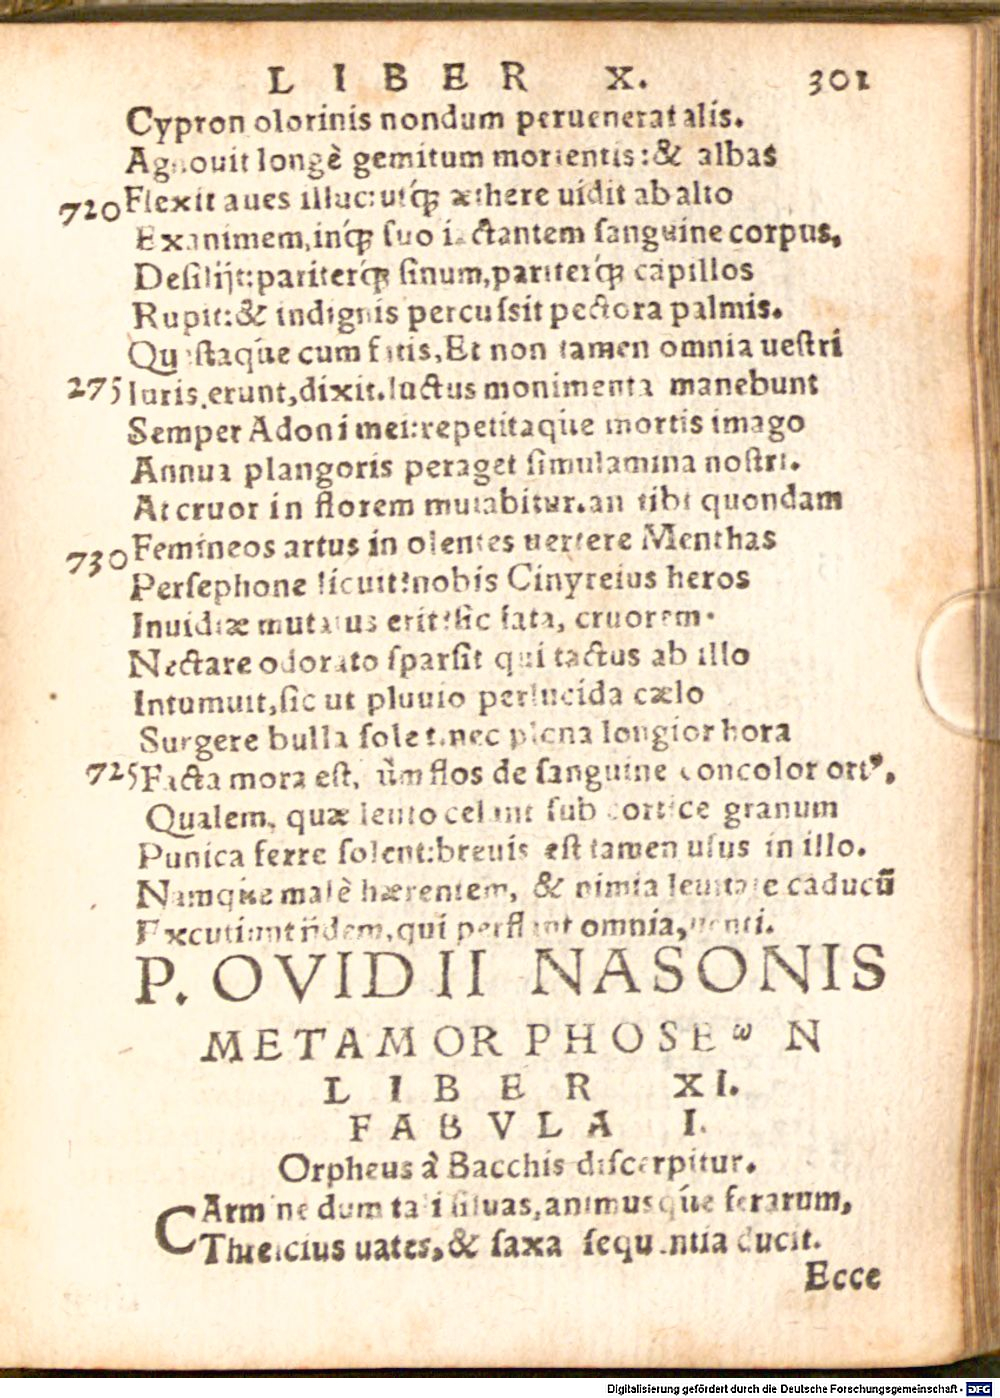 LIBER X. 301
Cypron olorinis nondum peruenerat alis.
Agnouit longè gemitum morientis:& albas
720 Flexit aues illuc: utq́; æthere uidit ab alto
Exanimem, inq́; suo iactantem sanguine corpus,
Desilijt: pariterq́; sinum, pariterq́; capillos
Rupit:& indignis percussit pectora palmis.
Questaq́ue cum fatis, Et non tamen omnia uestri
275 Iuris erunt, dixit. luctus monimenta manebunt
Semper Adoni mei: repetitaq́ue mortis imago
Annua plangoris peraget simulamina nostri.
At cruor in florem mutabitur. an tibi quondam
730 Femineos artus in olentes uertere Menthas
Persephone licuit? nobis Cinyreius heros
Inuidiæ mutatus erit? sic fata, cruorem
Nectare odorato sparsit qui tactus ab illo
Intumuit, sic ut pluuio perlucida cælo
Surgere bulla solet. nec plena longior hora
725 Facta mora est, cùm flos de sanguine concolor ortꝰ,
Qualem, quæ lento celant sub cortice granum
Punica ferre solent: breuis est tamen usus in illo.
Namq́ue malè hærentem, & nimia leuitate caducũ
Excutiunt ijdem, qui perflant omnia, uenti.
P. OVIDII NASONIS
METAMORPHOSEωN
LIBER XI.
FABVLA I.
Orpheus à Bacchis discerpitur.
CArmine dum tali siluas, animusq́ue ferarum,
Threicius uates, & saxa sequentia ducit.
Ecce
Digitalisierung gefördert durch die Deutsche Forschungsgemeinschaft - DFG